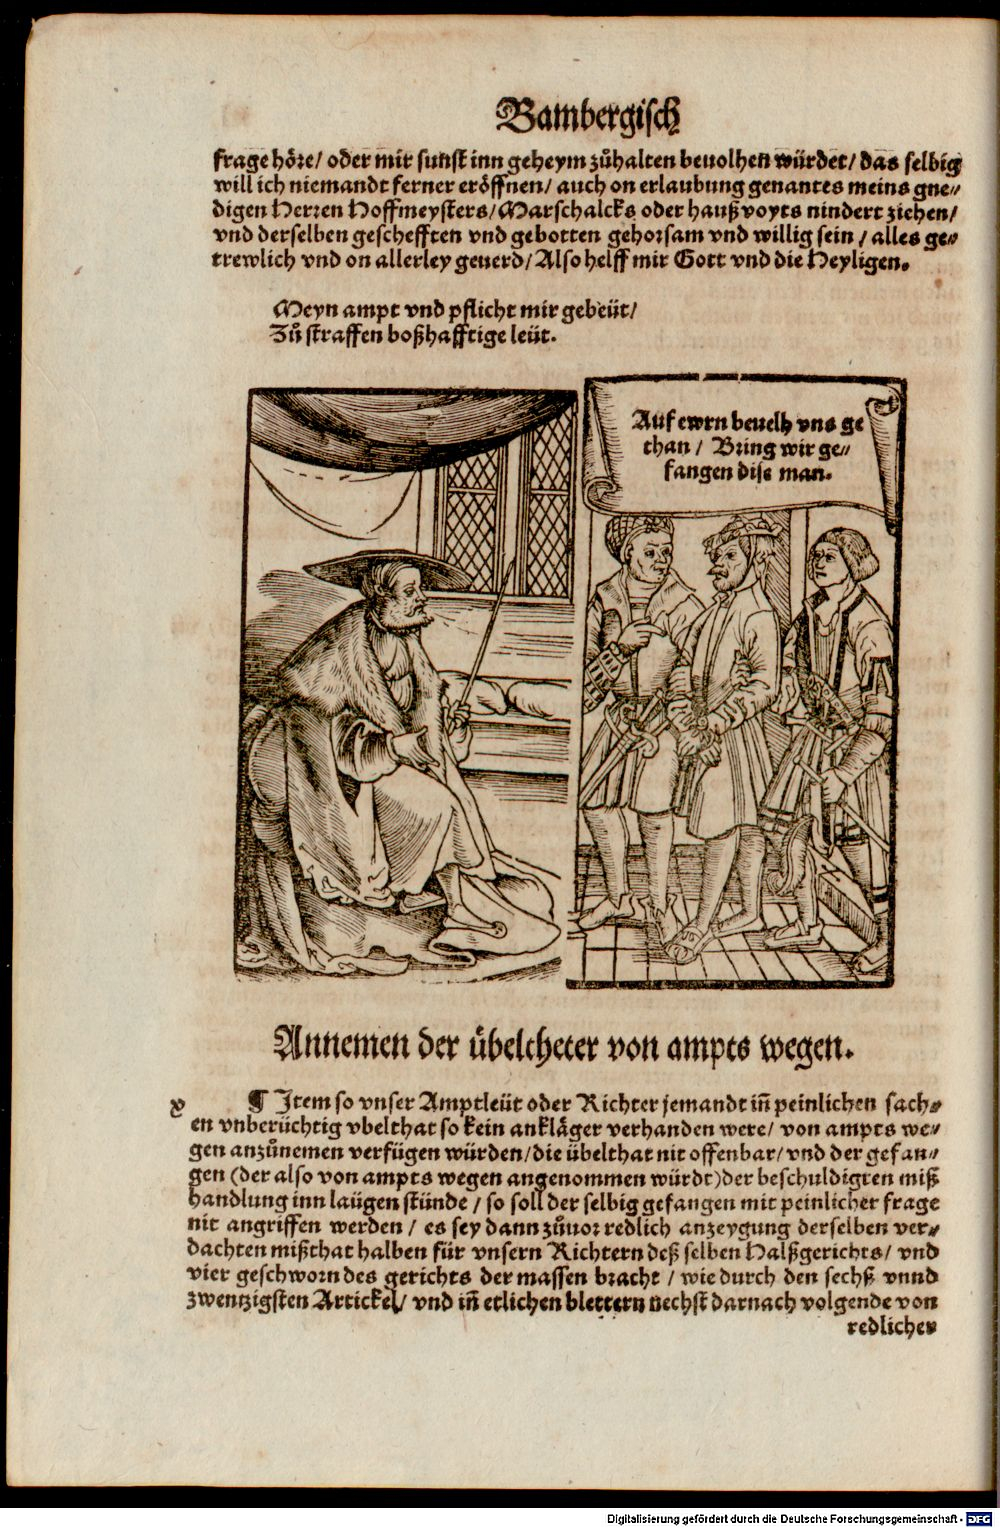 Bambergisch
frage höre/ oder mir sunst inn geheym zůhalten beuolhen würdet/ das selbig
will ich niemandt ferner eröffnen/ auch on erlaubung genantes meins gne⸗
digen Herren Hoffmeysters/ Marschalcks oder haußvoyts nindert ziehen/
vnd derselben geschefften vnd gebotten gehorsam vnd willig sein/ alles ge⸗
trewlich vnd on allerley geuerd/ Also helff mir Gott vnd die Heyligen.
Meyn ampt vnd pflicht mir gebeüt/
Zů straffen boßhafftige leüt.
Auf ewrn beuelh vns ge
than/ Bring wir ge⸗
fangen dise man.
Annemen der übeltheter von ampts wegen.
x ¶ Item so vnser Amptleüt oder Richter jemandt iñ peinlichen sach⸗
en vnberüchtig vbelthat so kein ankläger verhanden were/ von ampts we⸗
gen anzůnemen verfügen würden/ die übelthat nit offenbar/ vnd der gefan⸗
gen (der also von ampts wegen angenommen würdt) der beschuldigten miß
handlung inn laügen stünde/ so soll der selbig gefangen mit peinlicher frage
nit angriffen werden/ es sey dann zůuor redlich anzeygung derselben ver⸗
dachten mißthat halben für vnsern Richtern deß selben Halßgerichts/ vnd
vier geschworn des gerichts der massen bracht/ wie durch den sechß vnnd
zwentzigsten Artickel/ vnd iñ etlichen blettern nechst darnach volgende von
redlicher
Digitalisierung gefördert durch die Deutsche Forschungsgemeinschaft - DFG